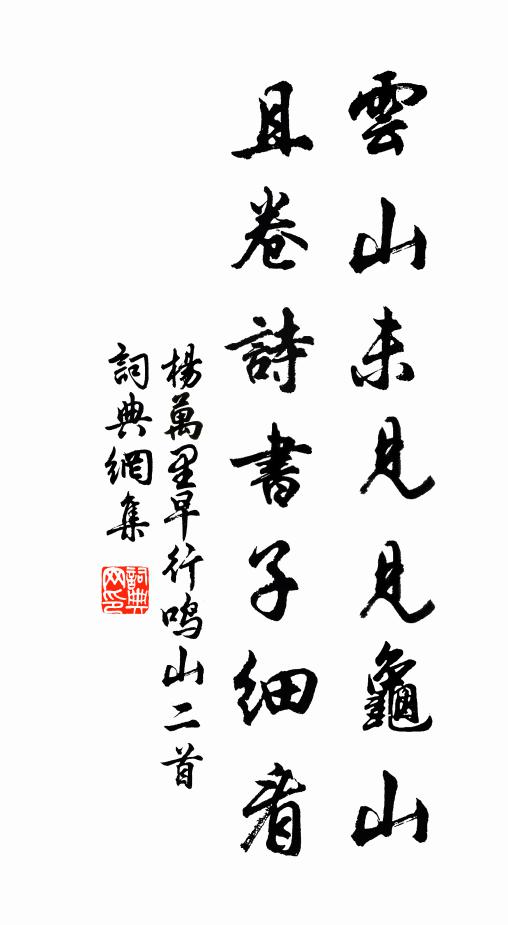 雲山未見見龜山
且卷詩書子細看
楊萬里早行鳴山二首
詞典網集
詞典網印